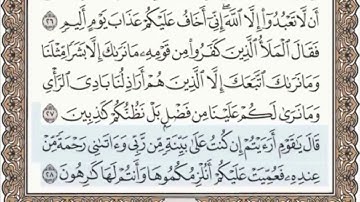 أَن لَّا تَعْبُدُوٓا۟ إِلَّا ٱللَّهَ إِنِّىٓ أَخَافُ عَلَيْكُمْ عَذَابَ يَوْمٍ أَلِيمٍ ٢٦
فَقَالَ ٱلْمَلَأُ ٱلَّذِينَ كَفَرُوا۟ مِن قَوْمِهِۦ مَا نَرَىٰكَ إِلَّا بَشَرًا مِّثْلَنَا
وَمَا نَرَىٰكَ ٱتَّبَعَكَ إِلَّا ٱلَّذِينَ هُمْ أَرَاذِلُنَا بَادِىَ ٱلرَّأْىِ
وَمَا نَرَىٰ لَكُمْ عَلَيْنَا مِن فَضْلٍۭ بَلْ نَظُنُّكُمْ كَٰذِبِينَ ٢٧
قَالَ يَٰقَوْمِ أَرَءَيْتُمْ إِن كُنتُ عَلَىٰ بَيِّنَةٍ مِّن رَّبِّى وَءَاتَىٰنِى رَحْمَةً مِّنْ
عِندِهِۦ فَعُمِّيَتْ عَلَيْكُمْ أَنُلْزِمُكُمُوهَا وَأَنتُمْ لَهَا كَٰرِهُونَ ٢٨